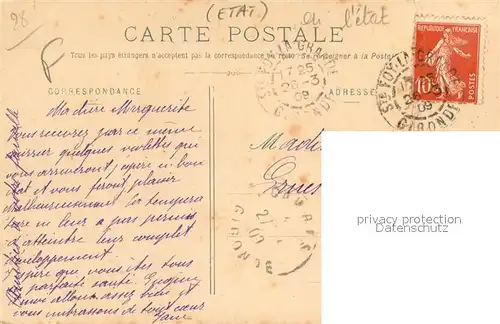 98
(ETAT)
en l'état
F
CARTE POSTALE
Tous les pays étrangers n'acceptent pas la correspondance au recto. (Se renseigner à la Poste)
RÉPUBLIQUE FRANÇAISE
10c
POSTES
STE FOY LA GRANDE
17 25
09
GIRONDE
STE FOY LA GRANDE
09
GIRONDE
CORRESPONDANCE
ADRESSE
Ma chère Marguerite
Vous recevrez par ce même
courrier quelques violettes qui
vous arriveront j'espère en bon
état et vous feront plaisir
Malheureusement la température
ne leur a pas permis
d'atteindre leur complet
développement
J'espère que vous êtes tous
en parfaite santé.
nous allons assez bien et
vous embrassons de tout cœur
Jane
Mad
GIRONDE
privacy protection
Datenschutz